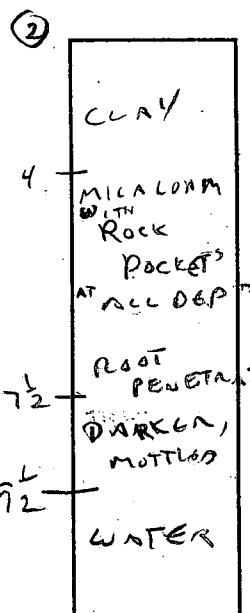 2
CLAY
4
MICA LOAM
WITH
ROCK
POCKETS
AT ALL DEPT
ROOT
PENETRA
7 1/2
DARKER,
MOTTLED
9 1/2
WATER